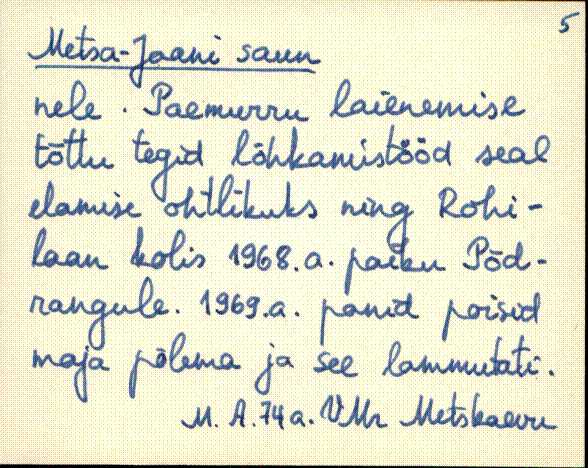 5
Metsa-Jaani saun
nele. Paemurru laienemise
tõttu tegid lõhkamistööd seal
elamise ohtlikuks ning Rohi-
laan kolis 1968.a. paiku Põd-
rangule. 1969.a. panid poisid
maja põlema ja see lammutati.
M. A. 74 a. VMr Metskaevu